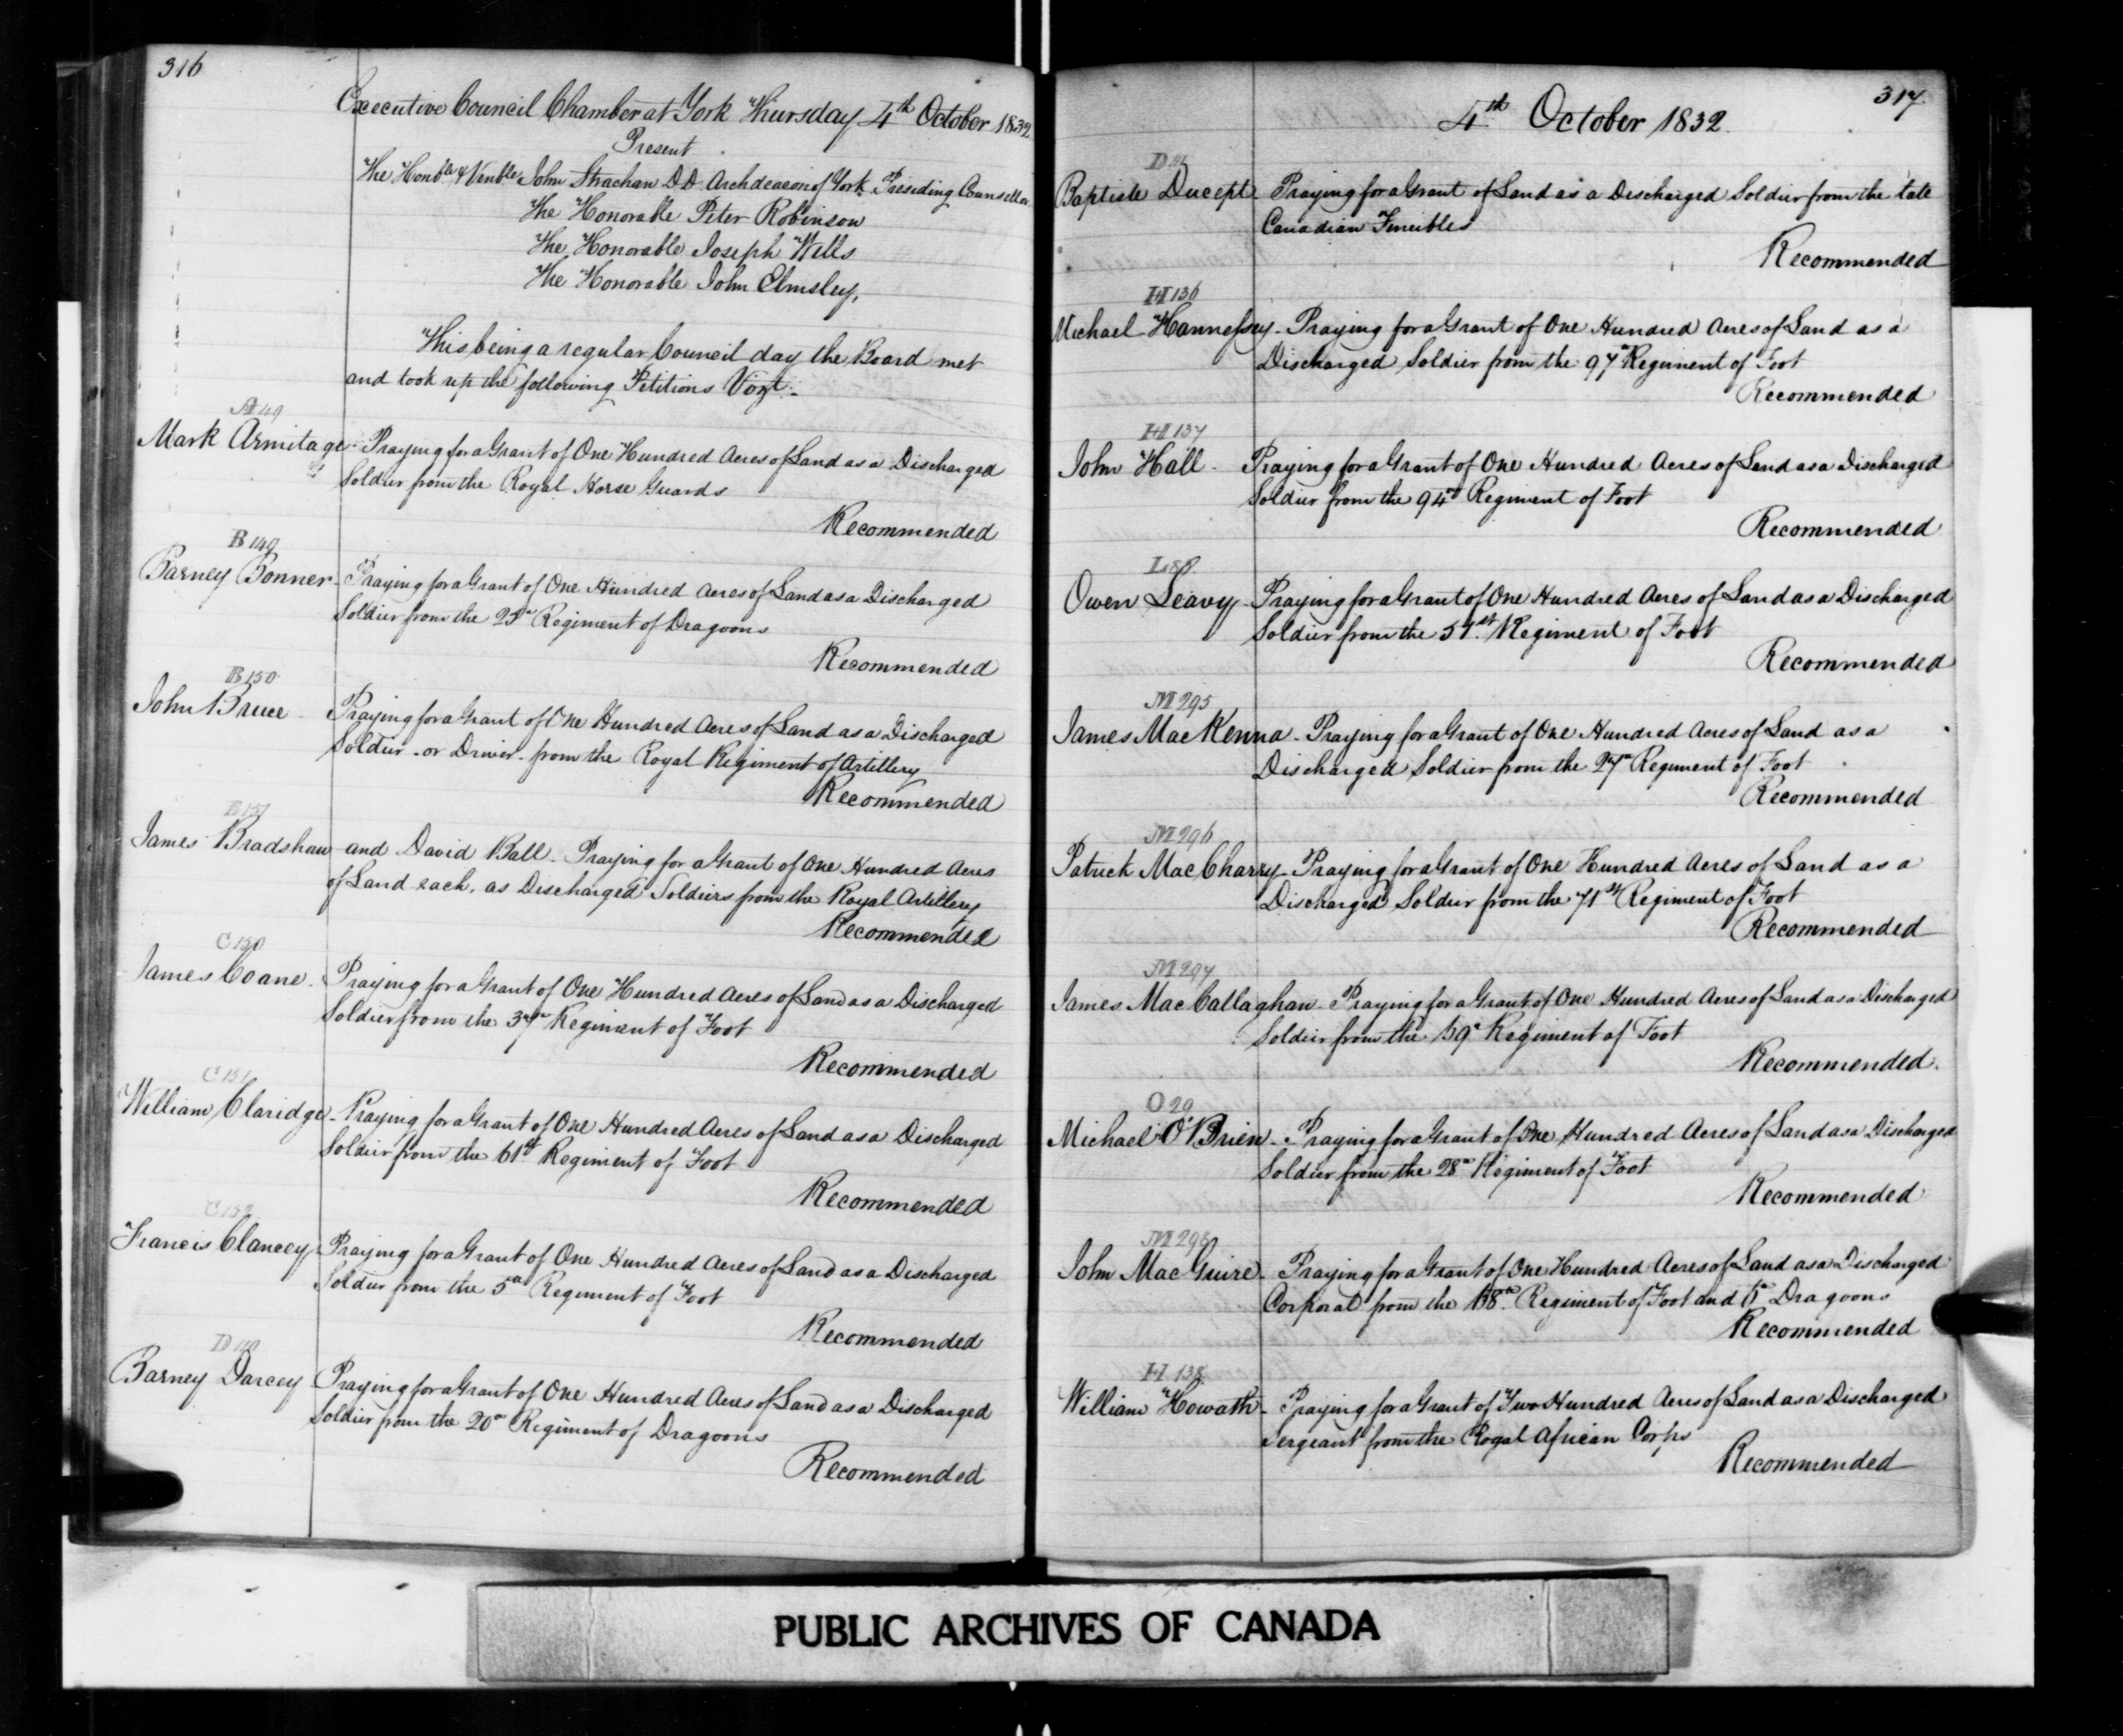 316
Executive Council Chamber at York Thursday 4th October 1832
Present
The Honble & Venble John Strachan D D Archdeacon of York Presiding Counsellor
The Honorable Peter Robinson
The Honorable Joseph Wells
The Honorable John Elmsley,
This being a regular Council day the Board met
and took up the following Petitions Vizt:-
A 49
Mark Armitage - Praying for a Grant of One Hundred Acres of Land as a Discharged
Soldier from the Royal Horse Guards
Recommended
B 149
Barney Bonner - Praying for a Grant of One Hundred Acres of Land as a Discharged
Soldier from the 23d Regiment of Dragoons
Recommended
B 150
John Bruce - Praying for a Grant of One Hundred Acres of Land as a Discharged
Soldier - or Driver - from the Royal Regiment of Artillery
Recommended
B 151
James Bradshaw and David Ball - Praying for a Grant of One Hundred Acres
of Land each, as Discharged Soldiers from the Royal Artillery
Recommended
C 150
James Coane - Praying for a Grant of One Hundred Acres of Land as a Discharged
Soldier from the 37th Regiment of Foot
Recommended
C 151
William Claridge - Praying for a Grant of One Hundred Acres of Land as a Discharged
Soldier from the 61st Regiment of Foot
Recommended
C 152
Francis Clancey - Praying for a Grant of One Hundred Acres of Land as a Discharged
Soldier from the 5th Regiment of Foot
Recommended
D 110
Barney Darcey Praying for a Grant of One Hundred Acres of Land as a Discharged
Soldier from the 20th Regiment of Dragoons
Recommended
317.
4th October 1832.
D 111
Baptiste Ducept - Praying for a Grant of Land as a Discharged Soldier from the late
Canadian Fencibles
Recommended
H 136
Michael Hannessey - Praying for a Grant of One Hundred Acres of Land as a
Discharged Soldier from the 97th Regiment of Foot
Recommended
H 137
John Hall - Praying for a Grant of One Hundred Acres of Land as a Discharged
Soldier from the 94th Regiment of Foot
Recommended
L 88
Owen Leavy - Praying for a Grant of One Hundred Acres of Land as a Discharged
Soldier from the 51st Regiment of Foot
Recommended
M 295
James MacKenna - Praying for a Grant of One Hundred Acres of Land as a
Discharged Soldier from the 27th Regiment of Foot
Recommended
M 296
Patrick MacCharry - Praying for a Grant of One Hundred Acres of Land as a
Discharged Soldier from the 71st Regiment of Foot
Recommended
M 297
James MacCallaghan - Praying for a Grant of One Hundred Acres of Land as a Discharged
Soldier from the 59th Regiment of Foot
Recommended.
O 29
Michael O'Brien - Praying for a Grant of One Hundred Acres of Land as a Discharged
Soldier from the 28th Regiment of Foot
Recommended
M 298
John MacGuire - Praying for a Grant of One Hundred Acres of Land as a Discharged
Corporal from the Regiment of Foot and Dragoons
Recommended
H 138
William Howath - Praying for a Grant of Two Hundred Acres of Land as a Discharged
Sergeant from the Royal African Corps
Recommended
PUBLIC ARCHIVES OF CANADA